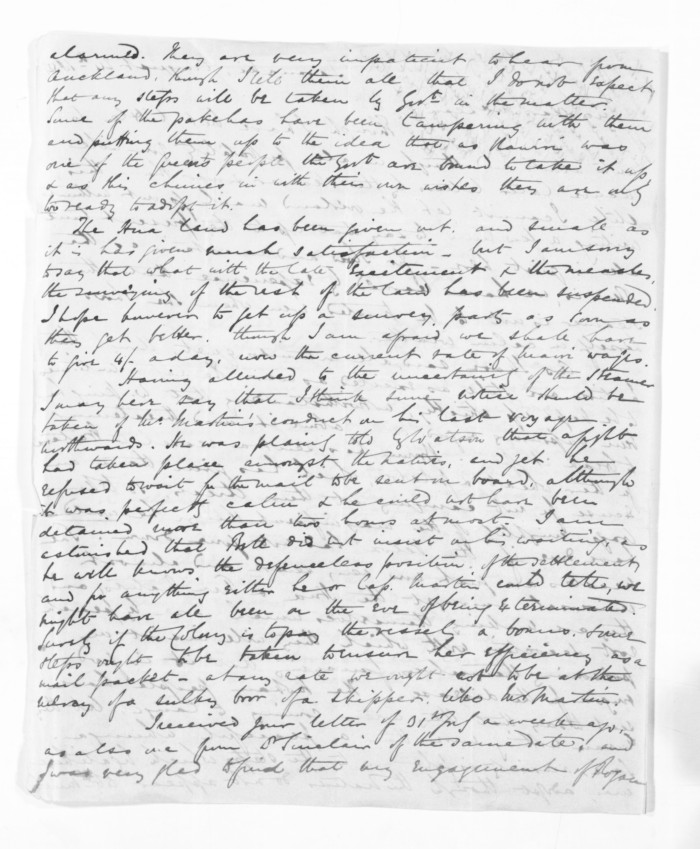 alarmed. They are very impatient to hear from
Auckland, though I tell them all that I do not expect
that any steps will be taken by Govt. in the matter.
Some of the pakehas have been tampering with them
and putting them up to the idea that as Rawiri was
one of the Queen's people the Govt are bound to take it up,
& as this chimes in with their own wishes they are only
too ready to adopt it.
The Hua land has been given out. and small as
it is has given much satisfaction - but I am sorry
to say that what with the late excitement & the measles,
the surveying of the rest of the land has been suspended.
I hope however to get up a survey party as soon as
they get better. though I am afraid we shall have
to give 4/- a day, now the current rate of maori wages.
Having alluded to the uncertainty of the Steamer
I may here say that I think some notice should be
taken of Mr. Martin's conduct on his last voyage
northwards. He was plainly told by Watson that a fight
had taken place amongst the natives, and yet he
refused to wait for the mail to be sent on board, although
it was perfectly calm & he could not have been
detained more than two hours at most. I am
astonished that Bell did not insist on his waiting, as
he well knows the defenceless position of the settlement,
and for anything either he or Cap. Martin could tell, we
might have all been on the eve of being exterminated.
Surely if the Colony is to pay the vessel a bonus, some
steps ought to be taken to ensure her efficiency as a
mail packet - at any rate we ought not to be at the
mercy of a sulky boor of a skipper like Mr Martin.
I received your letter of 31st July a week ago,
as also one from Dr Sinclair of the same date, and
I was very glad to find that my engagement of Rogan